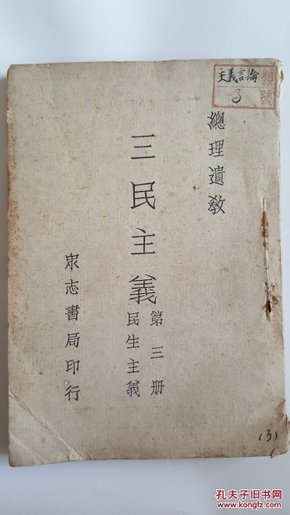 總理遺教
三民主義
第三册
民生主義
眾志書局印行
主義言論
3
類號
(3)
孔夫子旧书网